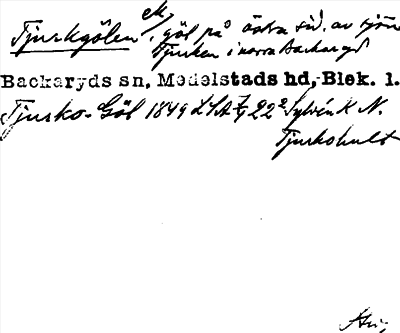 Tjurkgölen ek, göl på östra sid. av sjön
Tjurken i norra Backaryd
Backaryds sn, Medelstads hd, Blek. l.
Tjurko-Göl 1849 LSA 22 Sylvén K N.
Tjurkohult